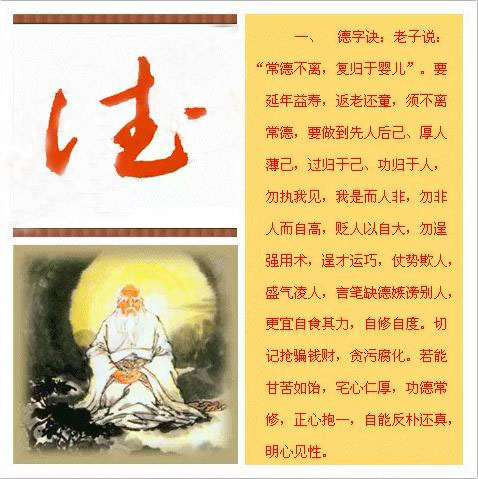 德
一、 德字诀：老子说：
“常德不离，复归于婴儿”。要
延年益寿，返老还童，须不离
常德，要做到先人后己、厚人
薄己，过归于己、功归于人，
勿执我见，我是而人非，勿非
人而自高，贬人以自大，勿逞
强用术，逞才运巧，仗势欺人，
盛气凌人，言笔缺德嫉谤别人，
更宜自食其力，自修自度。切
记抢骗钱财，贪污腐化。若能
甘苦如饴，宅心仁厚，功德常
修，正心抱一，自能反朴还真，
明心见性。